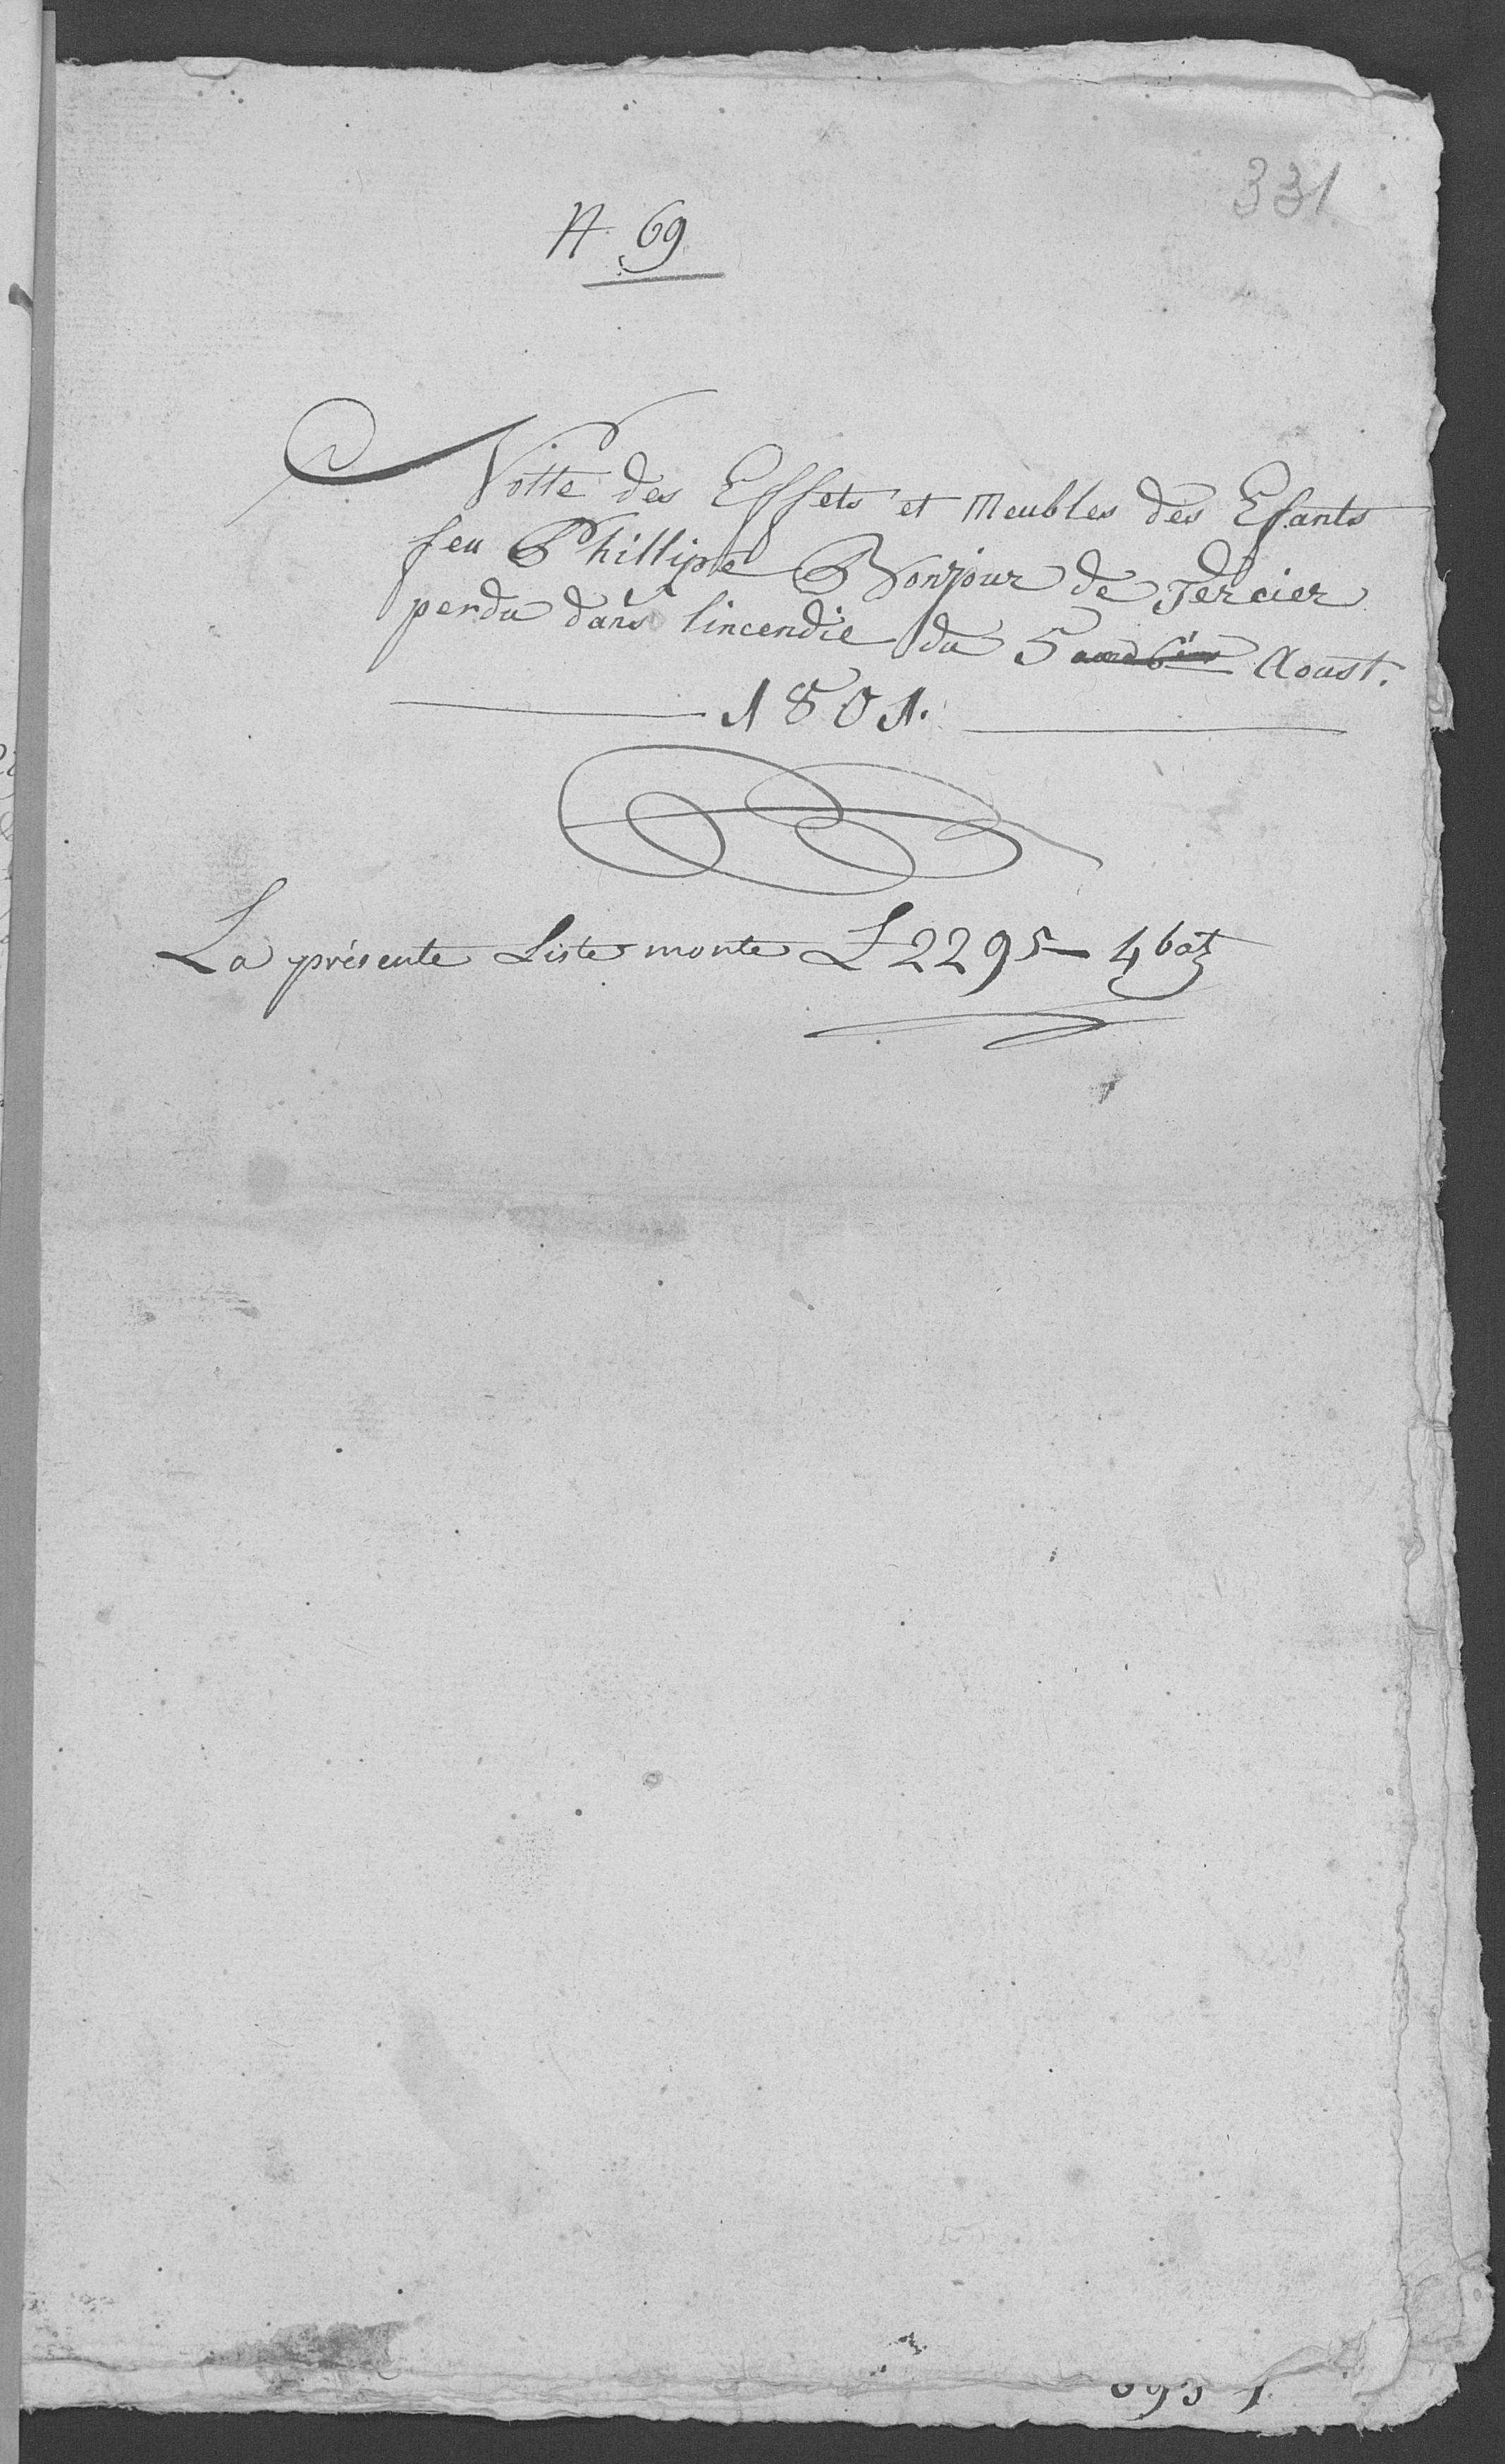 331
N. 69
Notte des Effets et Meubles des Efants
feu Phillipe Bonjour de Jercier
perdu dans lincendie du 5 Aoust.
1801.
La présente Liste monte L 2295 - 4 batz